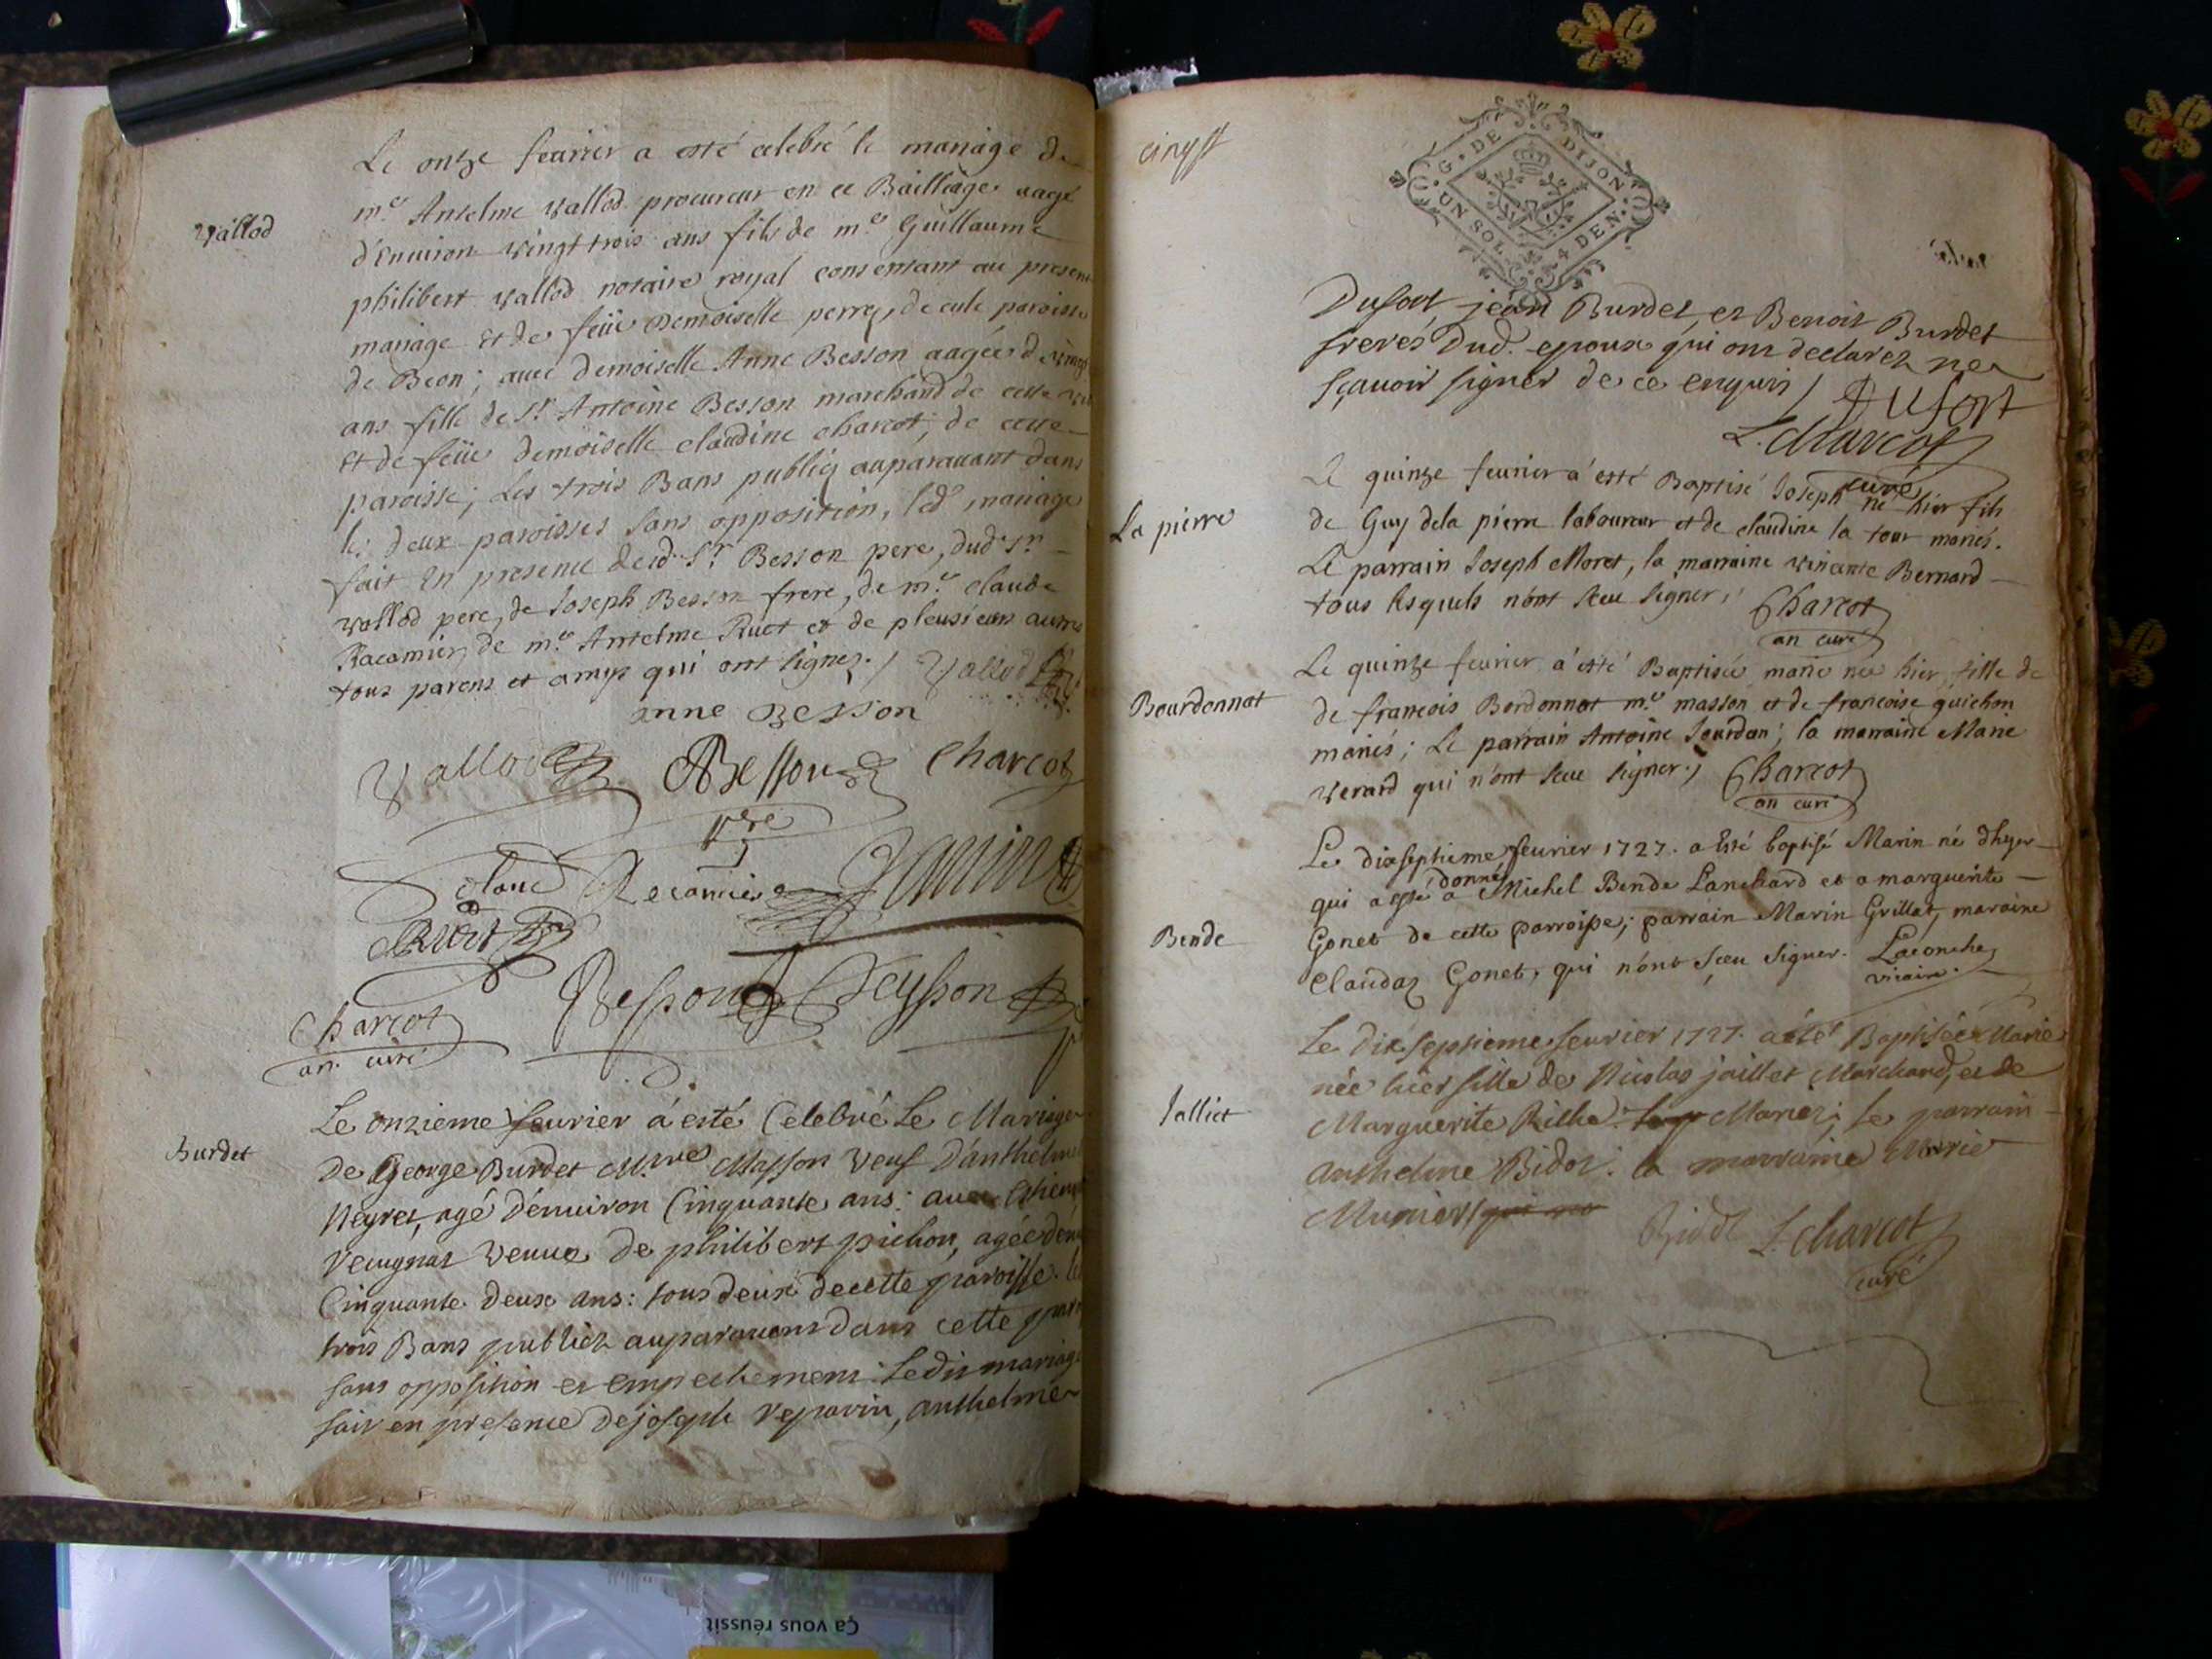 Vallod
Le onze feurier a esté celebré le mariage de
m.e Antelme Vallod procureur en ce Bailliage aagé
d'enuiron vingt trois ans fils de m.e Guillaume
philibert vallod notaire royal consentant au present
mariage et de feüe Demoiselle perra, de cule paroisse
de Beon; auec demoiselle Anne Besson aagée de vingt
ans fille de S.r Antoine Besson marchand de cette
et de feüe demoiselle claudine charcot, de cette
paroisse; Les trois Bans publiés auparauant dans
les deux paroisses sans opposition, led mariage
fait En presence dud. S.r Besson pere, dud Sr
vallod pere, de Joseph Besson frere, de m.e claude
Racamier, de m.e Antelme Ruet et de pleusieurs autres
tous parens et amys qui ont signez./ Vallod
anne Besson
Vallod Besson Charcot
pre
Claude Recamier Janin
Ruet
Besson Seysson
Charcot
an. curé
burdet
Le onzieme feurier á esté Celebré Le Mariage
De George Burdet M.tre Masson Veuf D'anthelme
Neyret, agé D'enuiron Cinquante ans: auec
Veugnat Veuue De philibert pichon, agée d'en
Cinquante Deux ans: tous deux de cette paroisse. les
trois Bans publiez auparauens Dans cette paro
sans opposition et empechemens: Ledit mariage
fait en presence De joseph Veparin, anthelme
cinq st
G. DE DIJON
UN SOL 4 DEN.
Dufort, jean Burdet, et Benoit Burdet
freres Dud. epoux qui ont declarez ne
sçauoir signer de ce enquis / Dufort
L. charcot
curé
La pierre
Le quinze feurier a' esté Baptisé Joseph né hier fils
de Guy dela pierre laboureur et de claudine la tour mariés.
Le parrain Joseph Moret, la marraine vincente Bernard
tous lesquels n'ont sceu signer;
Charcot
an curé
Bourdonnat
Le quinze feurier a' esté Baptisée marie née hier, fille de
de francois Bordonnat m.e masson et de francoise guichon
mariés; Le parrain Antoine Jourdan; la marraine Marie
verard qui n'ont sceu signer./ Charcot
an curé
Bende
Le dixseptieme feurier 1727. a Esté baptisé Marin né dhyer
qui a esté donné a Michel Bende Lanchard et a marguerite
Gonet de cette parroisse; parrain Marin Grillat, maraine
Claudaz Gonet, qui n'ont sceu signer. Laconche
vicaire.
Jalliet
Le Dixseptieme feurier 1727. a été Baptisée Marie
née hier fille de Nicolas jaillet Marchand, et de
Marguerite Rilhe Mariez; le parrain
anthelme Bidol: la marraine Marie
Munier/ qui no
Bidol L. charcot
curé
Ça vous réussit